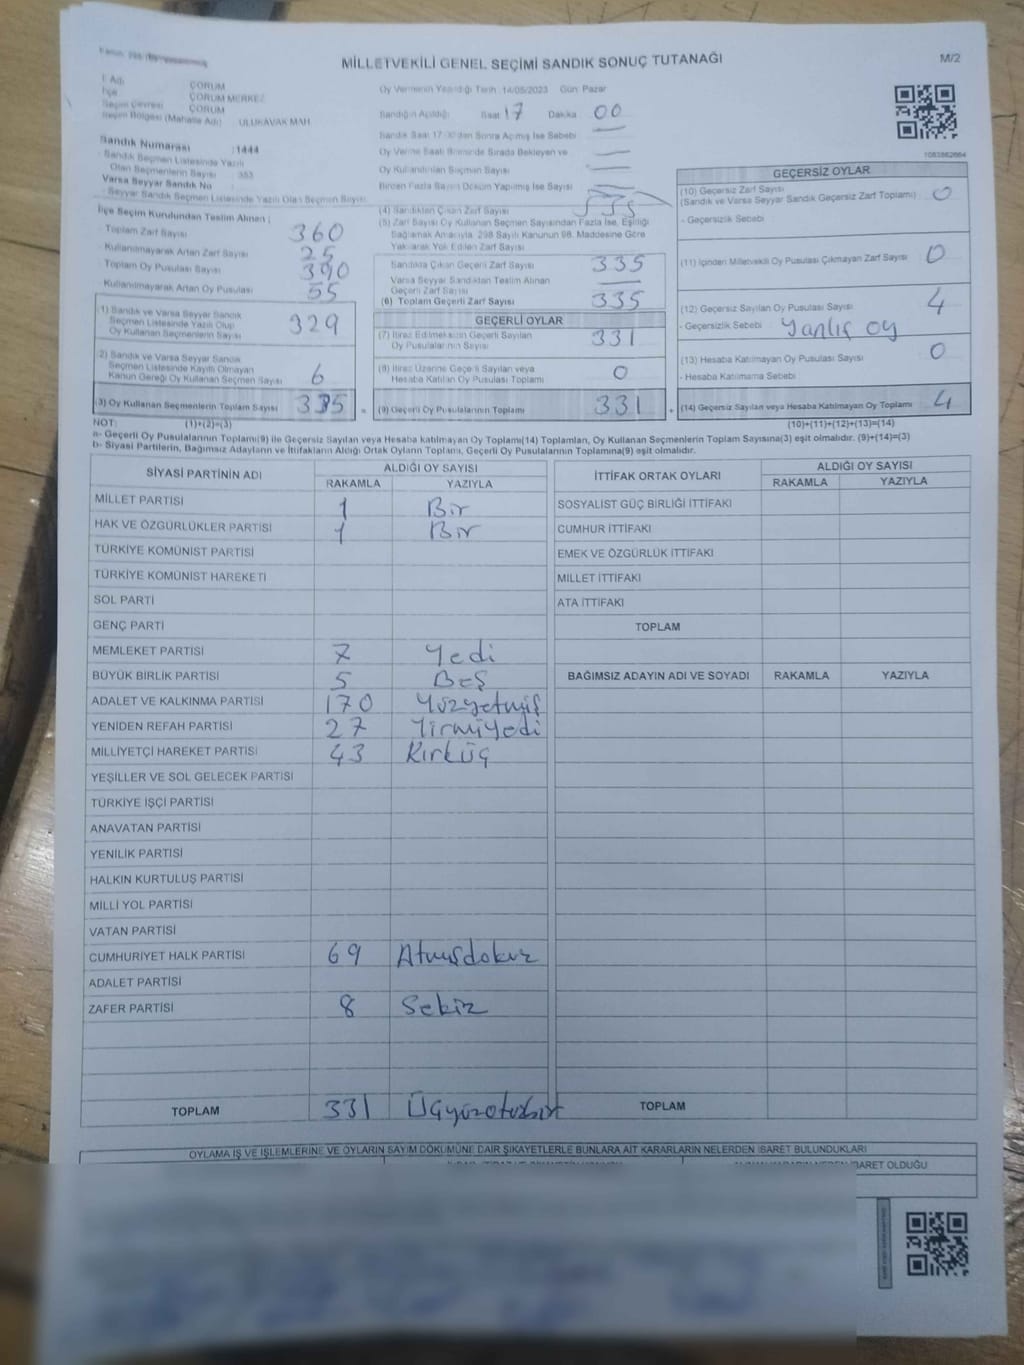 MİLLETVEKİLİ GENEL SEÇİMİ SANDIK SONUÇ TUTANAĞI
M/2
İl Adı ÇORUM
İlçe ÇORUM MERKEZ
Seçim Çevresi ÇORUM
Seçim Bölgesi (Mahalle Adı) : ULUKAVAK MAH
Sandık Numarası :1444
Sandık Seçmen Listesinde Yazılı
Olan Seçmenlerin Sayısı : 353
Varsa Seyyar Sandık No :
Seyyar Sandık Seçmen Listesinde Yazılı Olan Seçmen Sayısı
Oy Vermenin Yapıldığı Tarih :14/05/2023 Gün: Pazar
Sandığın Açıldığı Saat 17 Dakika 00
Sandık Saat 17:00'dan Sonra Açılmış İse Sebebi
Oy Verme Saati Bitiminde Sırada Bekleyen ve
Oy Kullandırılan Seçmen Sayısı
Birden Fazla Sayım Döküm Yapılmış İse Sayısı
1083862664
İlçe Seçim Kurulundan Teslim Alınan ;
- Toplam Zarf Sayısı 360
- Kullanılmayarak Artan Zarf Sayısı 25
- Toplam Oy Pusulası Sayısı 390
- Kullanılmayarak Artan Oy Pusulası 55
(1) Sandık ve Varsa Seyyar Sandık
Seçmen Listesinde Yazılı Olup
Oy Kullanan Seçmenlerin Sayısı 329
(2) Sandık ve Varsa Seyyar Sandık
Seçmen Listesinde Kayıtlı Olmayan
Kanun Gereği Oy Kullanan Seçmen Sayısı 6
(3) Oy Kullanan Seçmenlerin Toplam Sayısı 335 =
(4) Sandıktan Çıkan Zarf Sayısı 335
(5) Zarf Sayısı Oy Kullanan Seçmen Sayısından Fazla İse, Eşitliği
Sağlamak Amacıyla, 298 Sayılı Kanunun 98. Maddesine Göre
Yakılarak Yok Edilen Zarf Sayısı
Sandıkta Çıkan Geçerli Zarf Sayısı 335
Varsa Seyyar Sandıktan Teslim Alınan
Geçerli Zarf Sayısı
(6) Toplam Geçerli Zarf Sayısı 335
GEÇERLİ OYLAR
(7) İtiraz Edilmeksizin Geçerli Sayılan
Oy Pusulalarının Sayısı 331
(8) İtiraz Üzerine Geçerli Sayılan veya
Hesaba Katılan Oy Pusulası Toplamı 0
(9) Geçerli Oy Pusulalarının Toplamı 331 +
GEÇERSİZ OYLAR
(10) Geçersiz Zarf Sayısı
(Sandık ve Varsa Seyyar Sandık Geçersiz Zarf Toplamı) 0
- Geçersizlik Sebebi
(11) İçinden Milletvekili Oy Pusulası Çıkmayan Zarf Sayısı 0
(12) Geçersiz Sayılan Oy Pusulası Sayısı 4
- Geçersizlik Sebebi Yanlış oy
(13) Hesaba Katılmayan Oy Pusulası Sayısı 0
- Hesaba Katılmama Sebebi
(14) Geçersiz Sayılan veya Hesaba Katılmayan Oy Toplamı 4
NOT: (1)+(2)=(3) (10)+(11)+(12)+(13)=(14)
a- Geçerli Oy Pusulalarının Toplamı(9) ile Geçersiz Sayılan veya Hesaba katılmayan Oy Toplamı(14) Toplamları, Oy Kullanan Seçmenlerin Toplam Sayısına(3) eşit olmalıdır. (9)+(14)=(3)
b- Siyasi Partilerin, Bağımsız Adayların ve İttifakların Aldığı Ortak Oyların Toplamı, Geçerli Oy Pusulalarının Toplamına(9) eşit olmalıdır.
SİYASİ PARTİNİN ADI ALDIĞI OY SAYISI
RAKAMLA YAZIYLA
MİLLET PARTİSİ 1 Bir
HAK VE ÖZGÜRLÜKLER PARTİSİ 1 Bir
TÜRKİYE KOMÜNİST PARTİSİ
TÜRKİYE KOMÜNİST HAREKETİ
SOL PARTİ
GENÇ PARTİ
MEMLEKET PARTİSİ 7 Yedi
BÜYÜK BİRLİK PARTİSİ 5 Beş
ADALET VE KALKINMA PARTİSİ 170 Yüzyetmiş
YENİDEN REFAH PARTİSİ 27 Yirmiyedi
MİLLİYETÇİ HAREKET PARTİSİ 43 Kırküç
YEŞİLLER VE SOL GELECEK PARTİSİ
TÜRKİYE İŞÇİ PARTİSİ
ANAVATAN PARTİSİ
YENİLİK PARTİSİ
HALKIN KURTULUŞ PARTİSİ
MİLLİ YOL PARTİSİ
VATAN PARTİSİ
CUMHURİYET HALK PARTİSİ 69 Atmışdokuz
ADALET PARTİSİ
ZAFER PARTİSİ 8 Sekiz
TOPLAM 331 Üçyüzotuzbir
İTTİFAK ORTAK OYLARI ALDIĞI OY SAYISI
RAKAMLA YAZIYLA
SOSYALİST GÜÇ BİRLİĞİ İTTİFAKI
CUMHUR İTTİFAKI
EMEK VE ÖZGÜRLÜK İTTİFAKI
MİLLET İTTİFAKI
ATA İTTİFAKI
TOPLAM
BAĞIMSIZ ADAYIN ADI VE SOYADI RAKAMLA YAZIYLA
TOPLAM
OYLAMA İŞ VE İŞLEMLERİNE VE OYLARIN SAYIM DÖKÜMÜNE DAİR ŞİKAYETLERLE BUNLARA AİT KARARLARIN NELERDEN İBARET BULUNDUKLARI
İBARET OLDUĞU